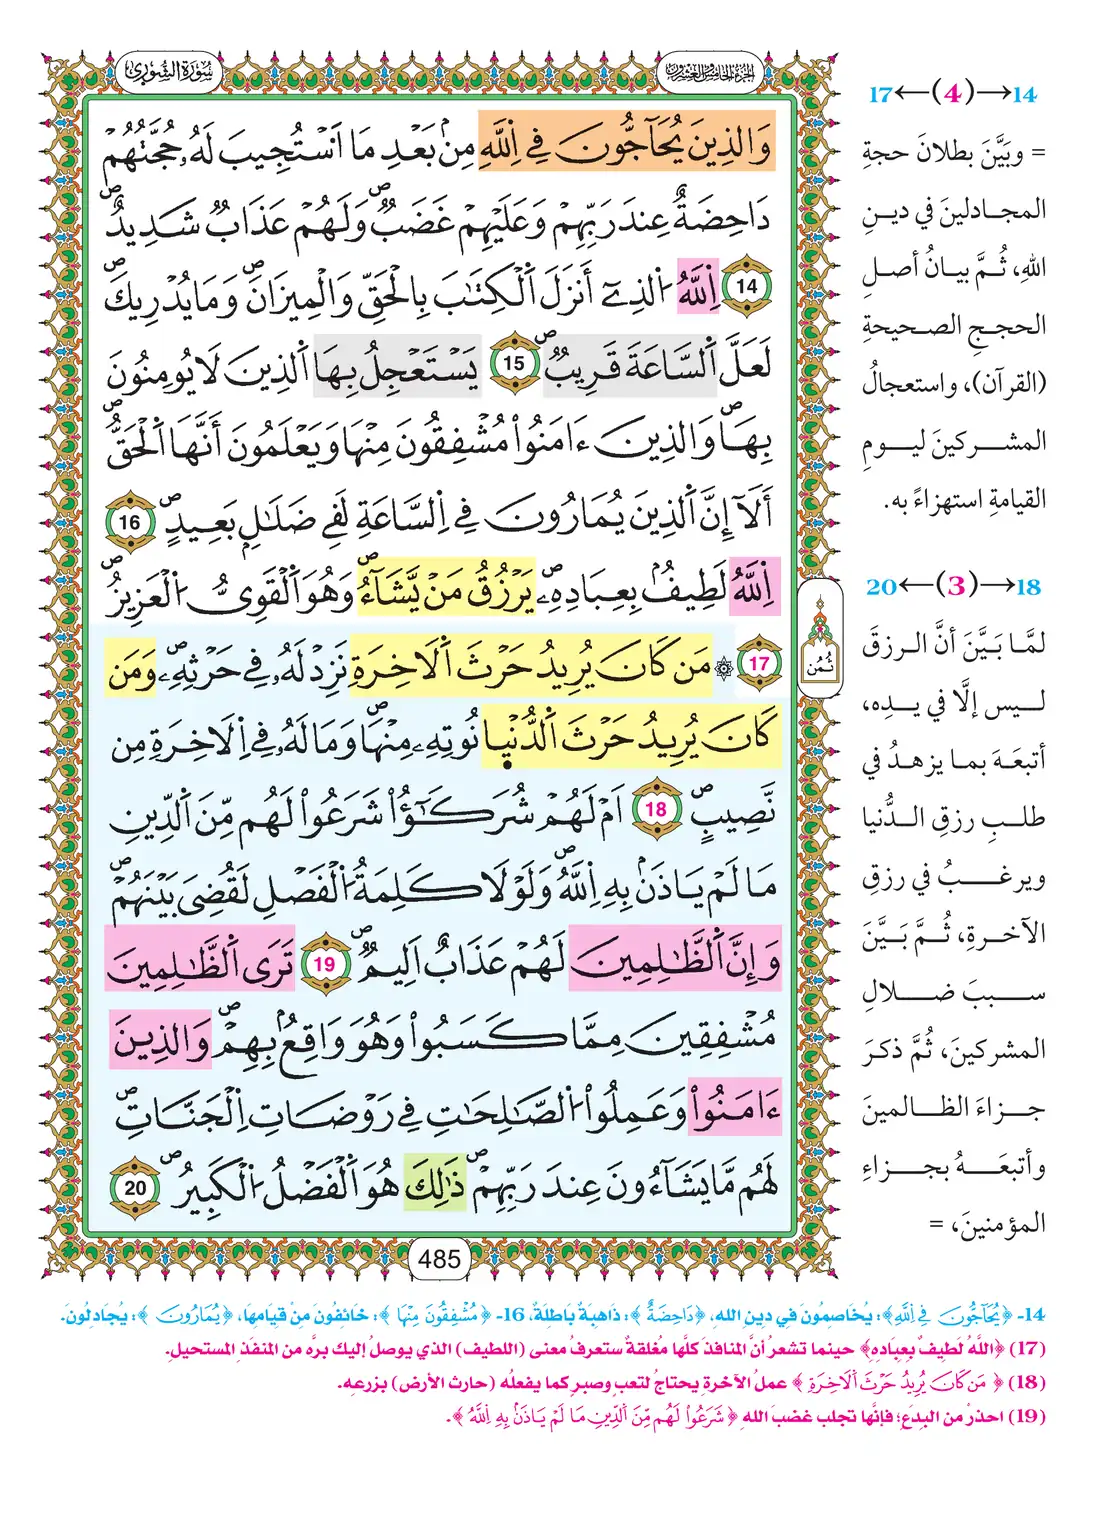 سُورَةُ الشُّورىٰ
الجزء الخامس والعشرون
وَالذِينَ يُحَآجُّونَ فِے اِ۬للَّهِ مِنۢ بَعْدِ مَا اَ۟سْتُجِيبَ لَهُۥ حُجَّتُهُمْ
دَاحِضَةٌ عِندَ رَبِّهِمْ وَعَلَيْهِمْ غَضَبٞ وَلَهُمْ عَذَابٞ شَدِيدٌۖ
14 اِ۬للَّهُ اُ۬لذِےٓ أَنزَلَ اَ۬لْكِتَٰبَ بِالْحَقِّ وَالْمِيزَانَۖ وَمَا يُدْرِيكَ
لَعَلَّ اَ۬لسَّاعَةَ قَرِيبٞۖ 15 يَسْتَعْجِلُ بِهَا اَ۬لذِينَ لَا يُومِنُونَ
بِهَاۖ وَالذِينَ ءَامَنُواْ مُشْفِقُونَ مِنْهَا وَيَعْلَمُونَ أَنَّهَا اَ۬لْحَقُّۖ
أَلَآ إِنَّ اَ۬لذِينَ يُمَارُونَ فِے اِ۬لسَّاعَةِ لَفِے ضَلَٰلِۢ بَعِيدٍۖ 16
اِ۬للَّهُ لَطِيفُۢ بِعِبَادِهِۦۖ يَرْزُقُ مَنْ يَّشَآءُۖ وَهُوَ اَ۬لْقَوِيُّ اُ۬لْعَزِيزُۖ
17 ۞ مَن كَانَ يُرِيدُ حَرْثَ اَ۬لَاخِرَةِ نَزِدْ لَهُۥ فِے حَرْثِهِۦۖ وَمَن
كَانَ يُرِيدُ حَرْثَ اَ۬لدُّنْيَا نُوتِهِۦ مِنْهَاۖ وَمَا لَهُۥ فِے اِ۬لَاخِرَةِ مِن
نَّصِيبٍۖ 18 اَمْ لَهُمْ شُرَكَٰٓؤُاْ شَرَعُواْ لَهُم مِّنَ اَ۬لدِّينِ
مَا لَمْ يَاذَنۢ بِهِ اِ۬للَّهُۖ وَلَوْلَا كَلِمَةُ اُ۬لْفَصْلِ لَقُضِيَ بَيْنَهُمْۖ
وَإِنَّ اَ۬لظَّٰلِمِينَ لَهُمْ عَذَابٌ اَلِيمٞۖ 19 تَرَى اَ۬لظَّٰلِمِينَ
مُشْفِقِينَ مِمَّا كَسَبُواْ وَهُوَ وَاقِعُۢ بِهِمْۖ وَالذِينَ
ءَامَنُواْ وَعَمِلُواْ اُ۬لصَّٰلِحَٰتِ فِے رَوْضَاتِ اِ۬لْجَنَّاتِۖ
لَهُم مَّا يَشَآءُونَ عِندَ رَبِّهِمْۖ ذَٰلِكَ هُوَ اَ۬لْفَضْلُ اُ۬لْكَبِيرُۖ 20
ثُمُن
485
14→(4)←17
= وبَيَّنَ بطلانَ حجةِ
المجادلينَ في دينِ
اللهِ، ثُمَّ بيانُ أصلِ
الحججِ الصحيحةِ
(القرآن)، واستعجالُ
المشركينَ ليومِ
القيامةِ استهزاءً به.
18→(3)←20
لمَّا بَيَّنَ أنَّ الرزقَ
ليس إلَّا في يدِه،
أتبعَهَ بما يزهدُ في
طلبِ رزقِ الدُّنيا
ويرغبُ في رزقِ
الآخرةِ، ثُمَّ بَيَّنَ
سببَ ضلالِ
المشركينَ، ثُمَّ ذكرَ
جزاءَ الظالمينَ
وأتبعَهُ بجزاءِ
المؤمنينَ، =
14- ﴿يُحَآجُّونَ فِے اِ۬للَّهِ﴾: يُخَاصِمُونَ في دينِ اللهِ، ﴿دَاحِضَةٌ﴾: ذَاهِبَةٌ بَاطِلَةٌ، 16- ﴿مُشْفِقُونَ مِنْهَا﴾: خَائِفُونَ مِنْ قيامِهَا، ﴿يُمَارُونَ﴾: يُجَادِلُونَ.
(17) ﴿اللَّهُ لَطِيفٌ بِعِبَادِهِ﴾ حينما تشعرُ أنَّ المنافذَ كلَّها مُغلقةٌ ستعرفُ معنى (اللطيف) الذي يوصلُ إليك برَّه من المنفذِ المستحيلِ.
(18) ﴿مَن كَانَ يُرِيدُ حَرْثَ اَ۬لَاخِرَةِ﴾ عملُ الآخرةِ يحتاجُ لتعبٍ وصبرٍ كما يفعلُه (حارثُ الأرضِ) بزرعِه.
(19) احذرْ من البدَعِ؛ فإنَّها تجلب غضبَ الله ﴿شَرَعُواْ لَهُم مِّنَ اَ۬لدِّينِ مَا لَمْ يَاذَنۢ بِهِ اِ۬للَّهُ﴾.